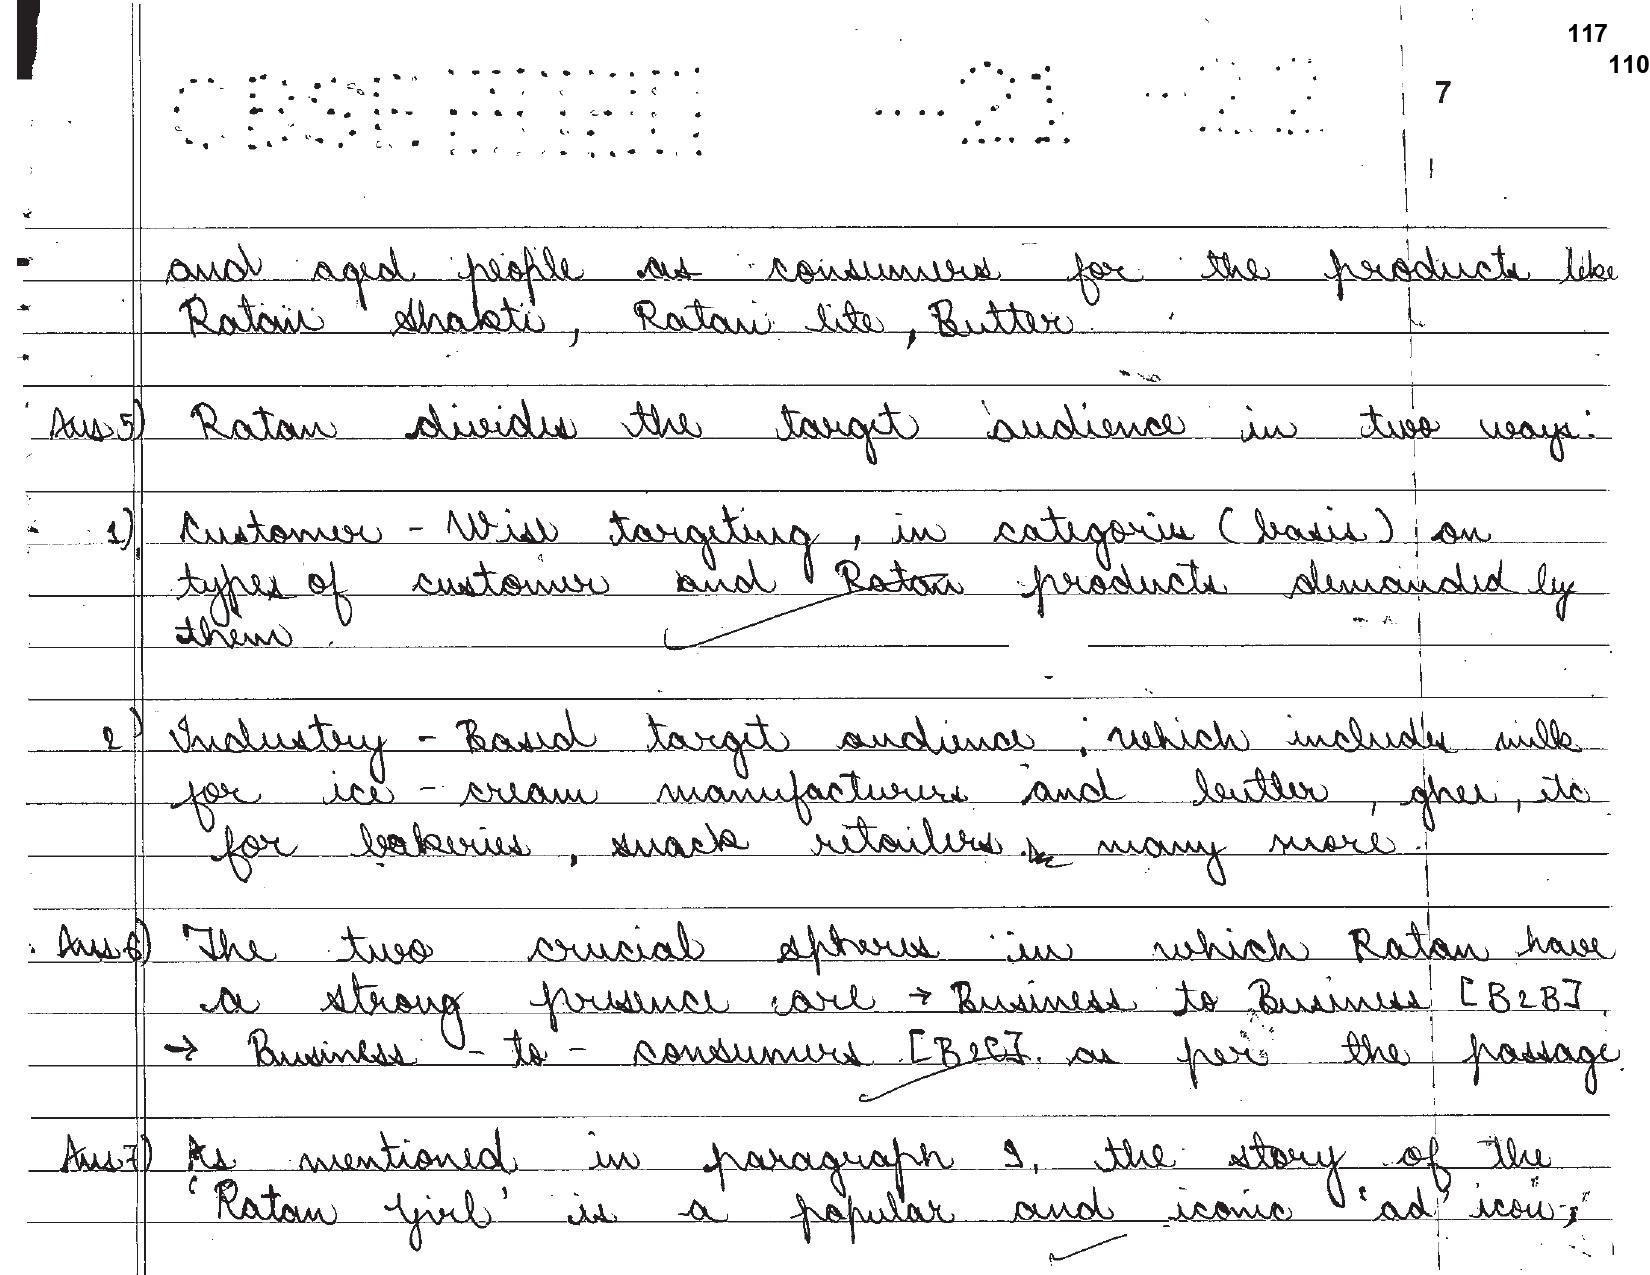 117
110
CBSE
21 22
7
and aged people as consumers for the products like
Ratan Shakti, Ratan lite, Butter
Ans 5) Ratan divides the target audience in two ways:
1) Customer - Wise targeting, in categories (basis) on
types of customer and Ratan products demanded by
them.
2) Industry - Based target audience, which includes milk
for ice - cream manufacturers and butter, ghee, etc
for bakeries, snack retailers & many more.
Ans 6) The two crucial spheres in which Ratan have
a strong presence are → Business to Business [B2B],
→ Business - to - consumers [B2C]. as per the passage.
Ans 7) As mentioned in paragraph I, the story of the
'Ratan Girl' is a popular and iconic 'ad' icon,